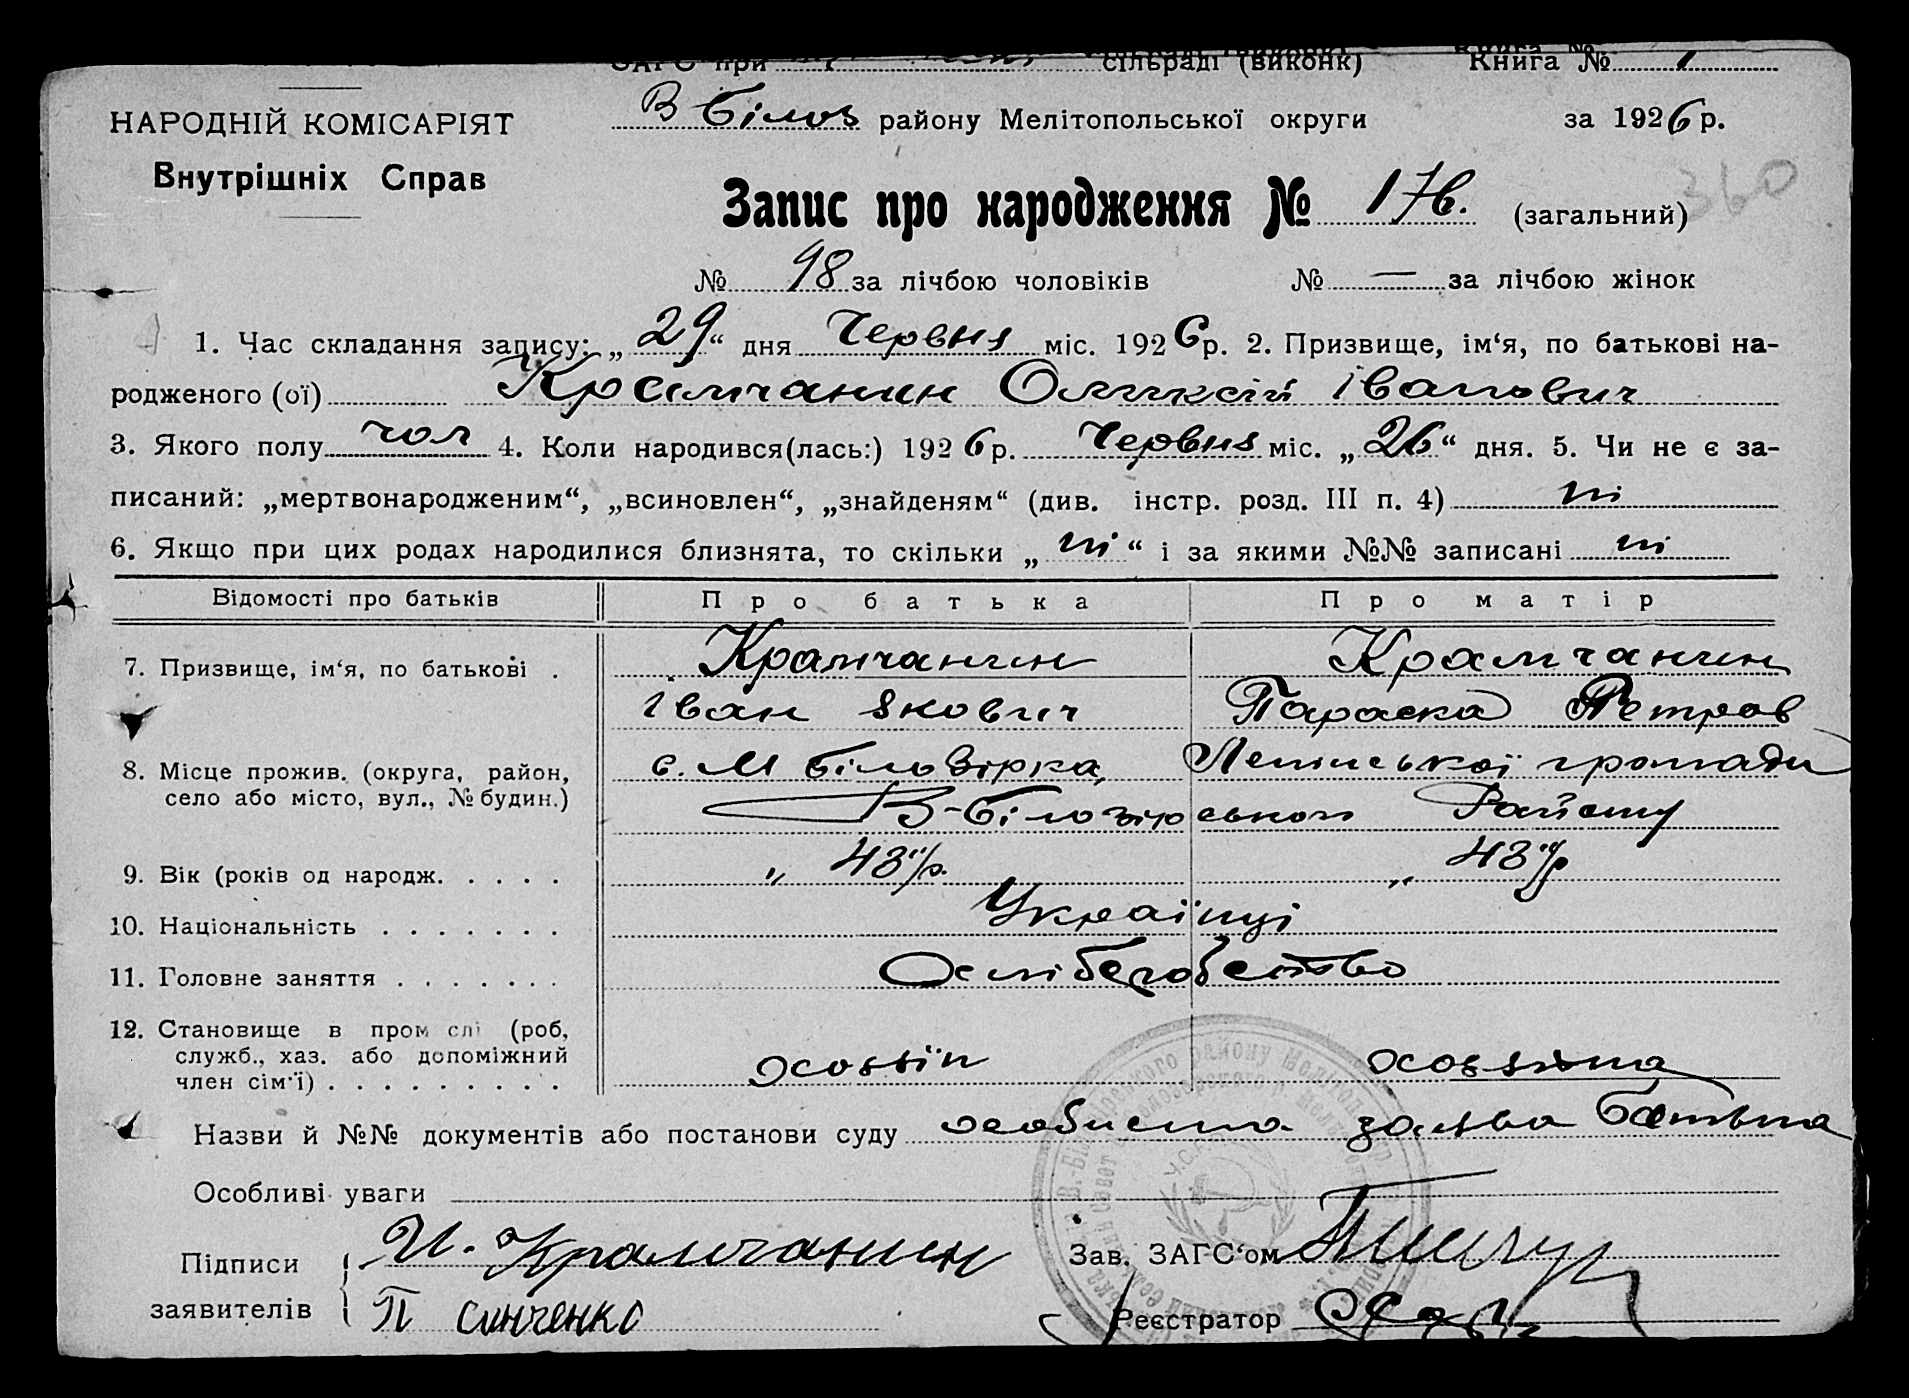 ЗАГС при сільраді (виконк) Книга № 1
НАРОДНІЙ КОМІСАРІЯТ
Внутрішніх Справ
В Білоз району Мелітопольської округи за 1926 р.
360
Запис про народження № 176. (загальний)
№ 98 за лічбою чоловіків № — за лічбою жінок
1. Час складання запису: „29“ дня Червня міс. 1926 р. 2. Призвище, ім‘я, по батькові на-
родженого (ої) Крамчанин Олексій Іванович
3. Якого полу чол 4. Коли народився(лась:) 1926 р. Червня міс. „26“ дня. 5. Чи не є за-
писаний: „мертвонародженим“, „всиновлен“, „знайденям“ (див. інстр. розд. III п. 4) ні
6. Якщо при цих родах народилися близнята, то скільки „ні“ і за якими №№ записані ні
Відомості про батьків Про батька Про матір
7. Призвище, ім‘я, по батькові . Крамчанин Крамчанин
Іван Якович Параска Петров
8. Місце прожив. (округа, район, село або місто, вул., № будин.) с. М Білозірка, Ленінської громади
В-Білозірського Району
9. Вік (років од народж. . . . . „ 43 р. „ 43 р
10. Національність . . . . . . . Українці
11. Головне заняття . . . . . . .
12. Становище в промислі (роб,
служб., хаз. або допоміжний
член сім‘ї) . . . . . . . . . .
Назви й №№ документів або постанови суду особиста заява батька
Особливі уваги
Підписи И. Крамчанин Зав. ЗАГС‘ом
заявителів П Синченко Реєстратор